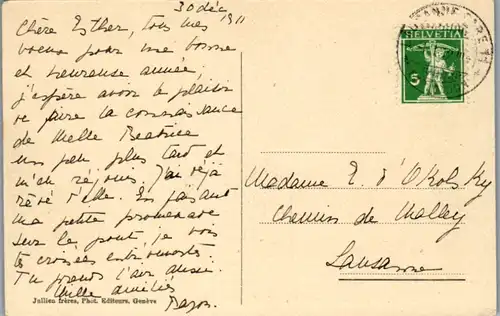 30 déc 1911
Chère Esther, tous mes
voeux pour une bonne
et heureuse année,
j'espère avoir le plaisir
de faire la connaissance
de Melle Beatrice
un peu plus tard et
m'en réjouis. J'ai déjà
rêvé d'elle. En faisant
ma petite promenade
sur le pont, je vois
tes croisées entr'ouvertes.
Tu prends l'air aussi.
Mille amitiés
HELVETIA
5
Madame E d'Okolsky
Chemin de Malley
Lausanne
Jullien frères, Phot. Editeurs, Genève